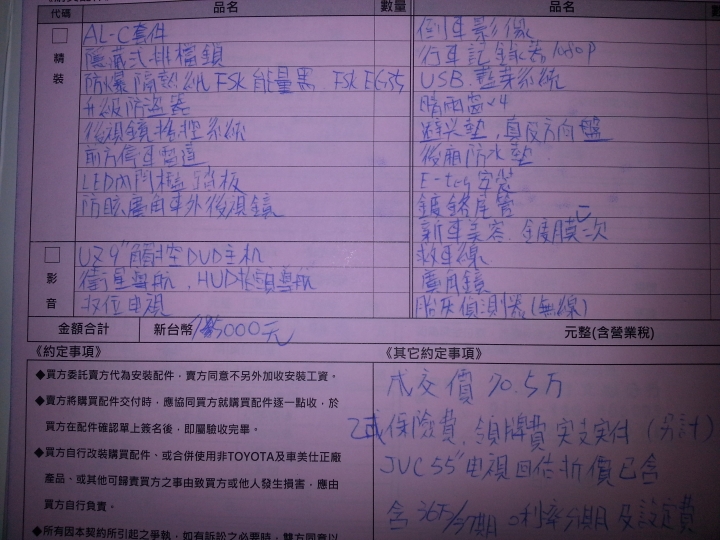 代碼 品名 數量 品名
精裝
AL-C套件
隱藏式排檔鎖
防爆隔熱紙FSK能量黑 FSK
升級防盜器
後視鏡
前方停車雷達
LED內門檻踏板
防眩廣角車外後視鏡
影音
9"觸控DVD主机
衛星導航．HUD抬頭導航
數位电視
倒車影像
行車記錄器1080P
USB．藍芽系統
晴雨窗×4
後廂防水墊
E-tag安裝
鍍鉻尾管
新車美容．鍍膜二次
救車線
廣角鏡
胎压偵測器(無線)
金額合計 新台幣 元整(含營業稅)
《約定事項》
◆買方委託賣方代為安裝配件，賣方同意不另外加收安裝工資。
◆賣方將購買配件交付時，應協同買方就購買配件逐一點收，於
買方在配件確認單上簽名後，即屬驗收完畢。
◆買方自行改裝購買配件、或合併使用非TOYOTA及車美仕正廠
產品、或其他可歸責買方之事由致買方或他人發生損害，應由
買方自行負責。
◆所有因本契約所引起之爭執，如有訴訟之必要時，雙方同意以
《其它約定事項》
成交價70.5万
乙式保險費．領牌費实支实付(另計)
JVC 55"电視回估折價已含
含36万/37期 0利率分期及設定費